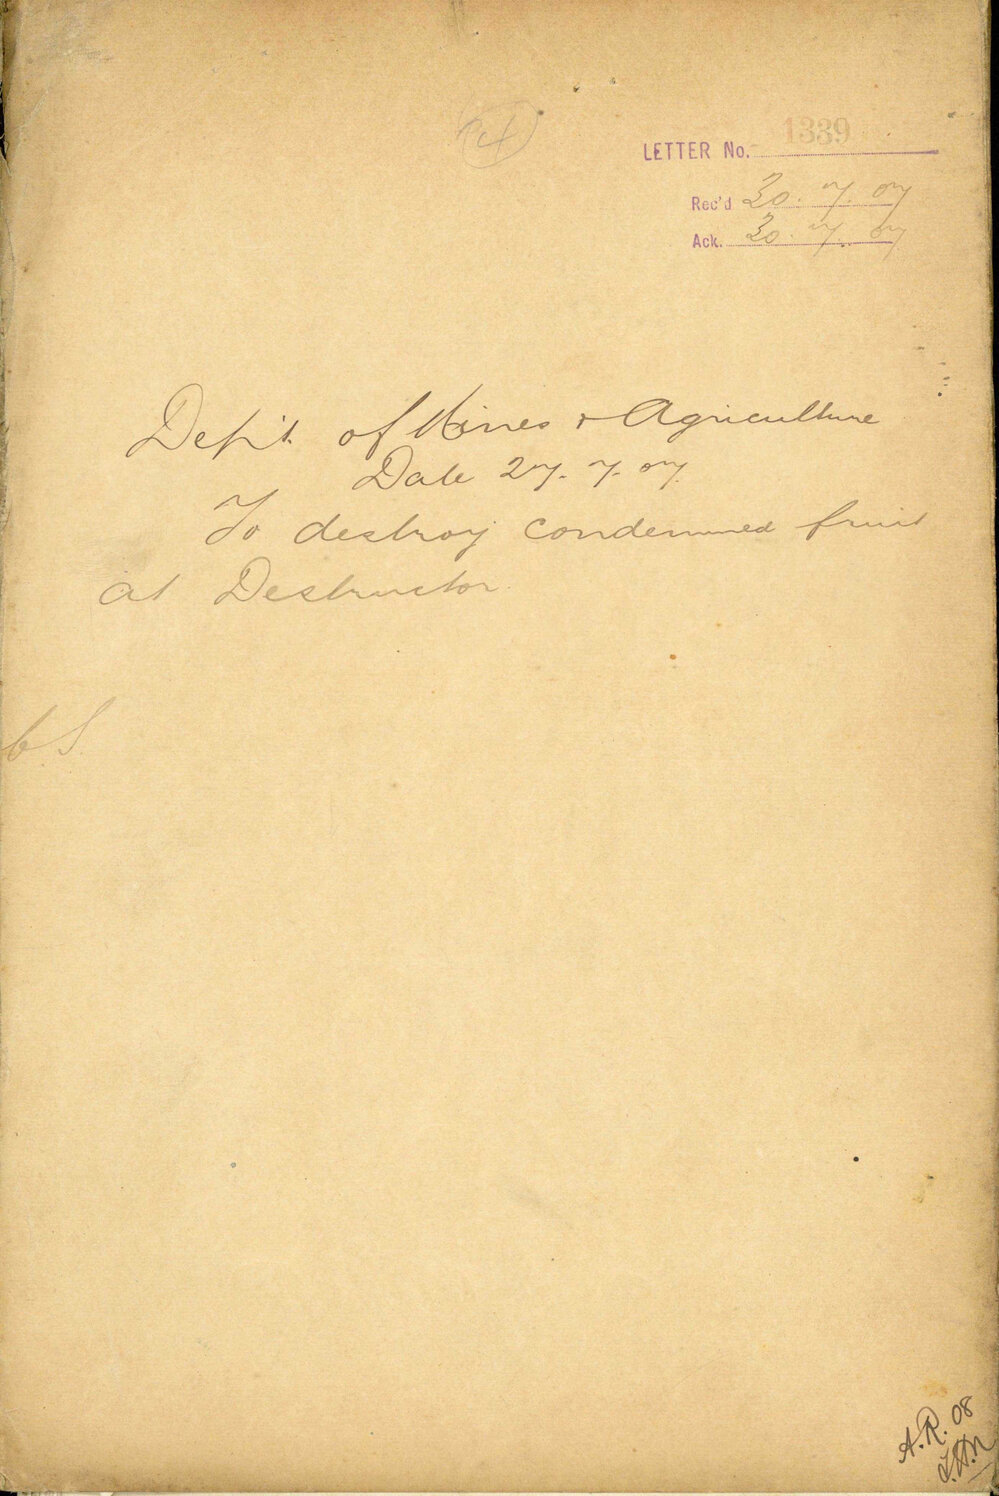 LETTER No. 1339
Rec'd 30. 7. 07
Ack. 30. 7. 07
Dep't. of Mines & Agriculture
Date 27. 7. 07.
To destroy condemned fruit
at Destructor.
A.R. 08